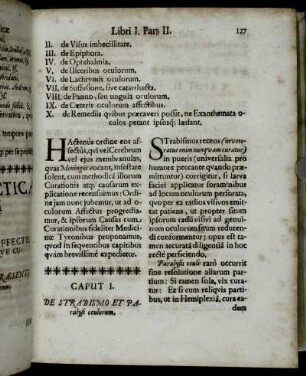 Libri I. Pars II. 127
II. de Visus imbecillitate.
III. de Epiphora.
IV. de Ophthalmia.
V. de Ulceribus oculorum.
VI. de Lachrymis oculorum.
VII. de Suffusione, sive catarrhacta.
VIII. de Panno, seu ungula oculorum.
IX. de Cæteris oculorum affectibus.
X. de Remediis quibus præcaveri possit, ne Exanthemata o-
culos petant ipsosq; lædant.
HActenus ordine eos af-
fectus, qui vel Cerebrum
vel ejus membranulas,
quas Meningas vocant, infestare
solent, cum methodica illorum
Curationis atq; causarum ex-
plicatione recensuimus: Ordi-
ne jam nunc jubemur, ut ad o-
culorum Affectus progredia-
mur, & ipsorum Causas cum
Curationibus fideliter Medici-
næ Tyronibus proponamus,
quod in sequentibus capitibus
quàm brevissimè expedietur.
CAPUT I.
DE STRABISMO ET PA-
ralysi oculorum.
STrabismus recens
in pueris (universalia pro
humore peccante quando præ-
mittuntur) corrigitur, si larva
faciei applicatur foraminibus
ad locum oculorum perforato,
quo per ea radios visivos emit-
tat patiens, ut propter situm
ipsorum radii visivi ad genui-
num oculorum situm reducen-
di condormentur; opus est ta-
men accurata diligentia in hoc
recte perficiendo.
Paralysis oculi raro occurrit
sine resolutione aliarum par-
tium: Si tamen sola, vix cura-
tur: Et si cum reliquis parti-
bus, ut in Hemiplexia, cura ea-
dem
tempore
CTICA
EFFECTU